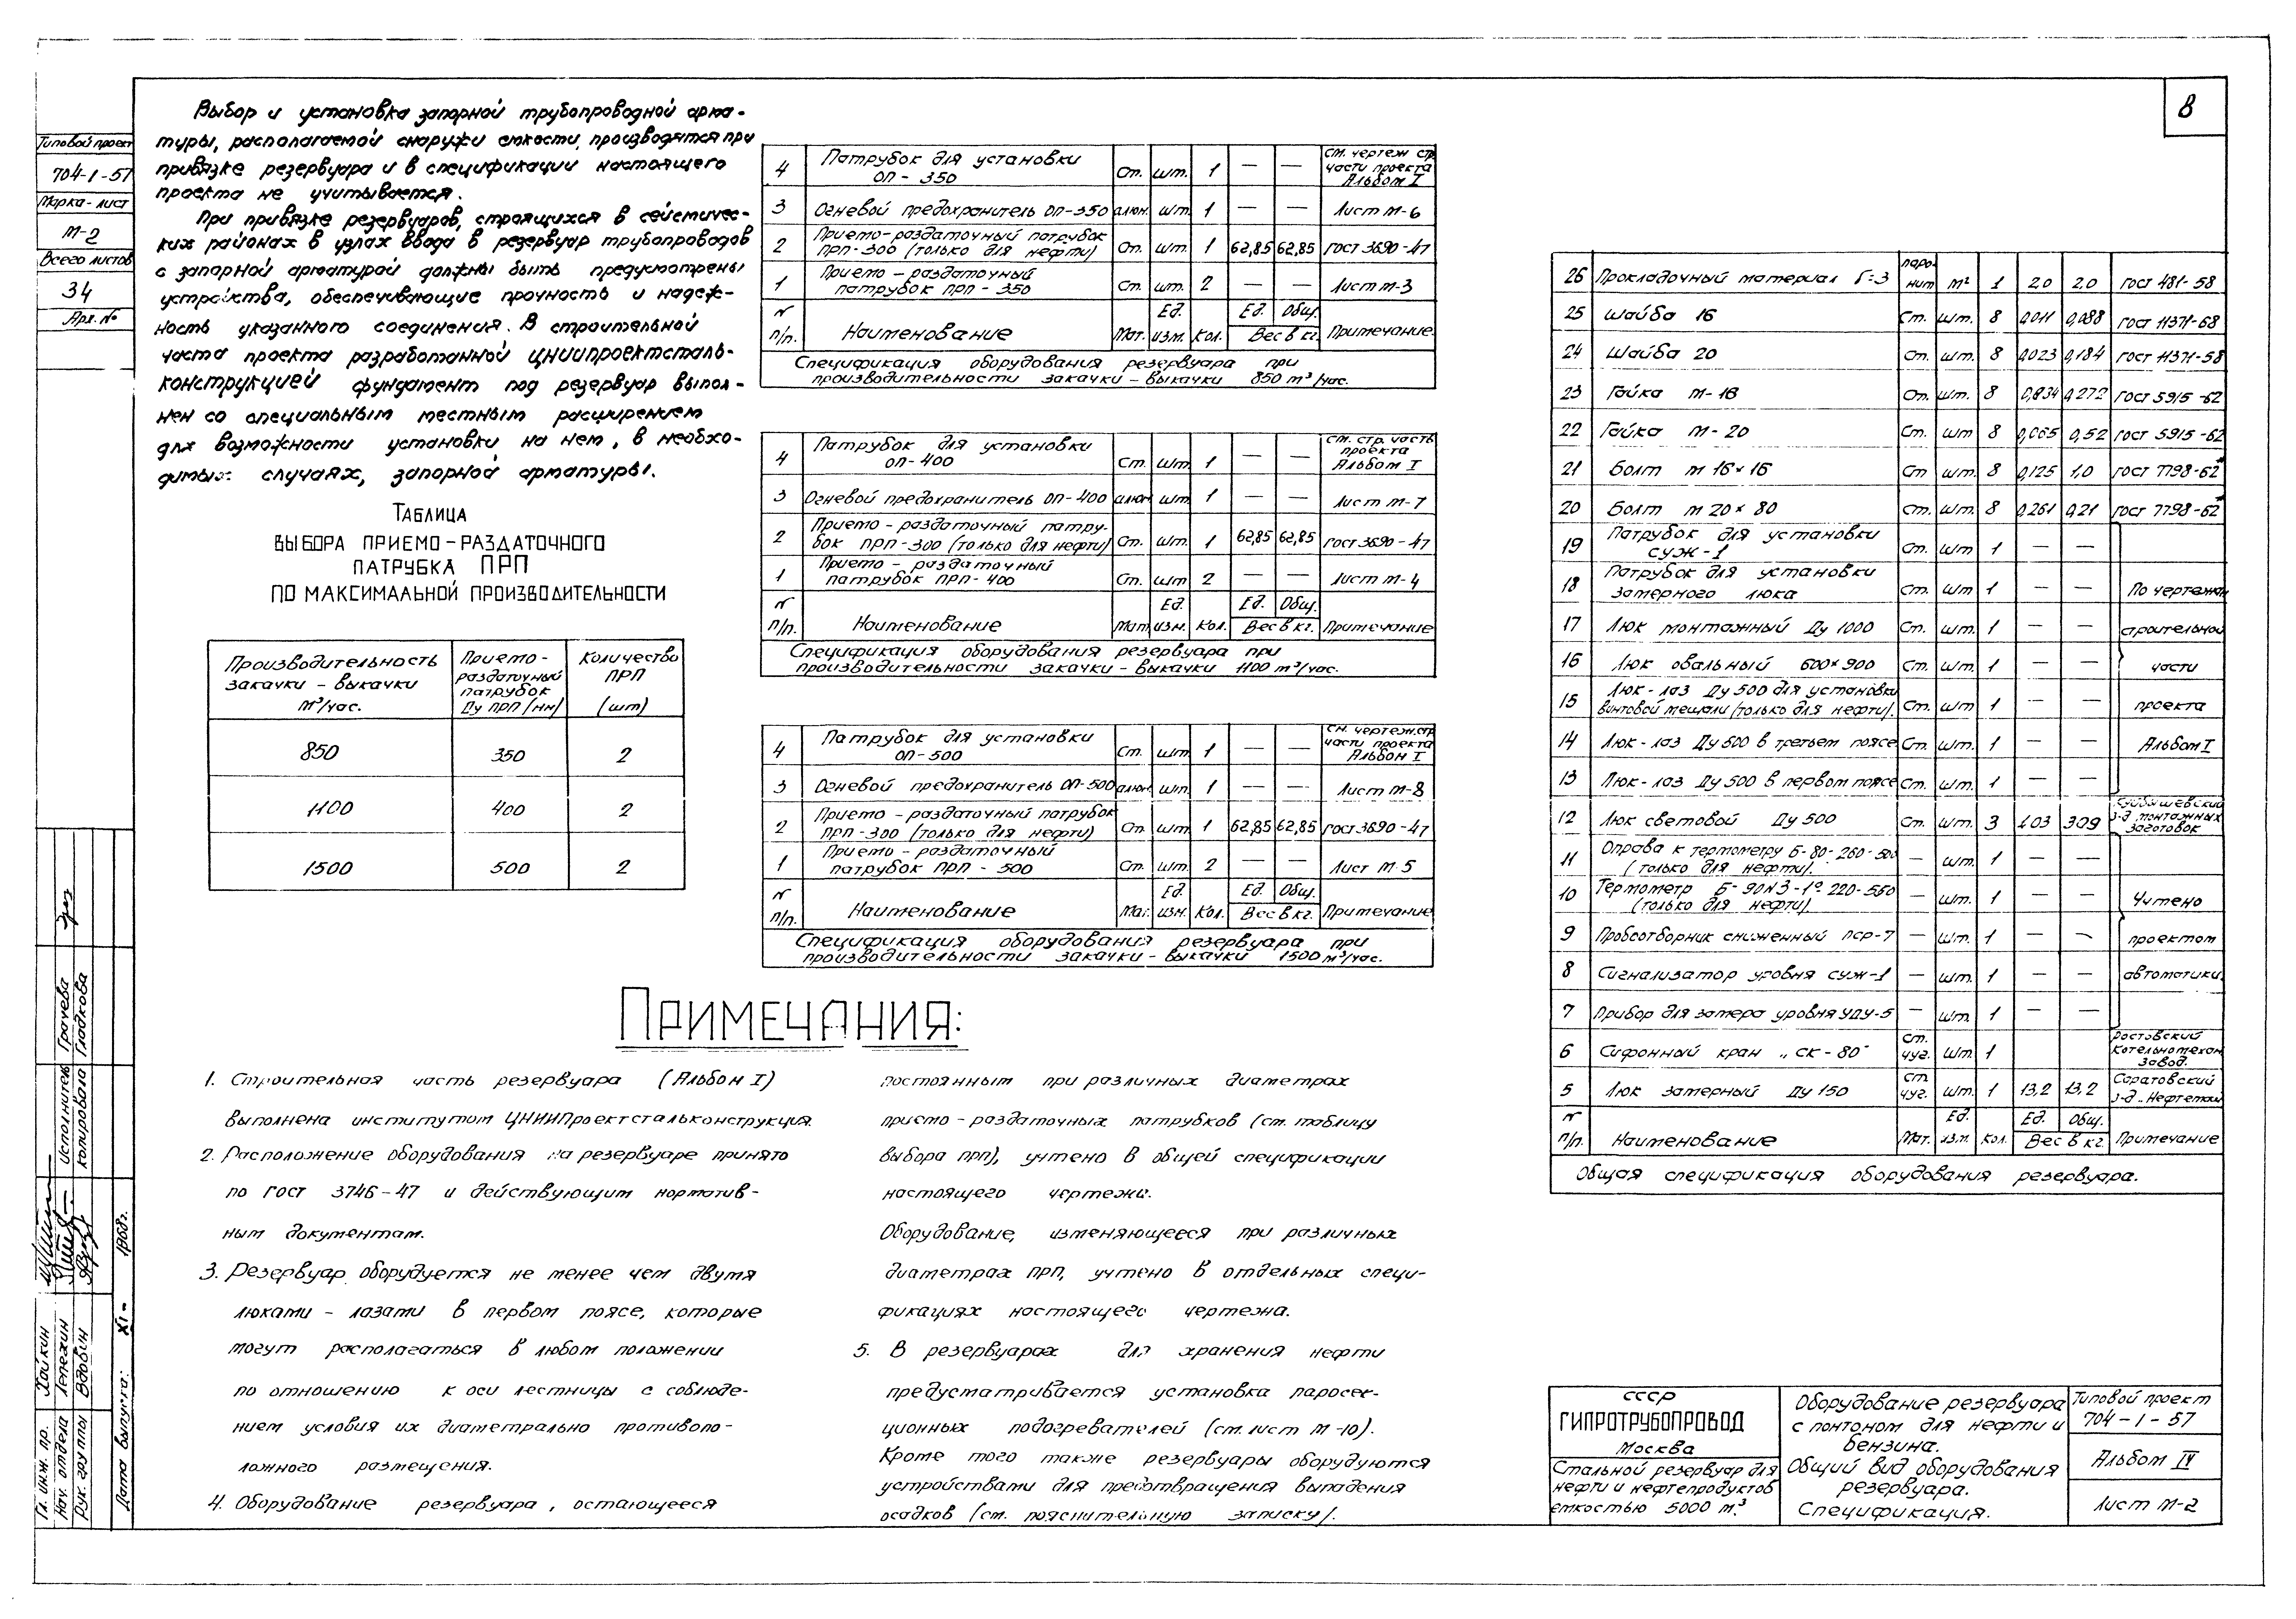 8
Типовой проект
704-1-57
Марка-лист
М-2
Всего листов
34
Арх. №
Выбор и установка запорной трубопроводной арма-
туры, располагаемой снаружи емкости, производятся при
привязке резервуара и в спецификации настоящего
проекта не учитывается.
При привязке резервуаров, строящихся в сейсмичес-
ких районах в узлах ввода в резервуар трубопроводов
с запорной арматурой должны быть предусмотрены
устройства, обеспечивающие прочность и надеж-
ность указанного соединения. В строительной
части проекта разработанной ЦНИИпроектсталь-
конструкцией фундамент под резервуар выпол-
нен со специальным местным расширением
для возможности установки на нем, в необхо-
димых случаях, запорной арматуры.
Таблица
выбора приемо-раздаточного
патрубка ПРП
по максимальной производительности
Производительность закачки - выкачки м³/час. Приемо-раздаточный патрубок Ду ПРП (мм) Количество ПРП (шт)
850 350 2
1100 400 2
1500 500 2
4 Патрубок для установки ОП-350 Ст. шт. 1 — — см. чертеж стр. части проекта Альбом I
3 Огневой предохранитель ОП-350 алюм. шт. 1 — — Лист М-6
2 Приемо-раздаточный патрубок ПРП-300 (только для нефти) Ст. шт. 1 62,85 62,85 ГОСТ 3690-47
1 Приемо-раздаточный патрубок ПРП-350 Ст. шт. 2 — — Лист М-3
№ п/п. Наименование Мат. Ед. изм. Кол. Ед. Общ. Вес в кг. Примечание
Спецификация оборудования резервуара при
производительности закачки-выкачки 850 м³/час.
4 Патрубок для установки ОП-400 Ст. шт. 1 — — см. стр. часть проекта Альбом I
3 Огневой предохранитель ОП-400 алюм шт. 1 — — Лист М-7
2 Приемо-раздаточный патрубок ПРП-300 (только для нефти) Ст. шт. 1 62,85 62,85 ГОСТ 3690-47
1 Приемо-раздаточный патрубок ПРП-400 Ст. шт 2 — — Лист М-4
№ п/п. Наименование Мат. Ед. изм. Кол. Ед. Общ. Вес в кг. Примечание
Спецификация оборудования резервуара при
производительности закачки-выкачки 1100 м³/час.
4 Патрубок для установки ОП-500 Ст. шт. 1 — — см. чертеж.стр. части проекта Альбом I
3 Огневой предохранитель ОП-500 алюм. шт. 1 — — Лист М-8
2 Приемо-раздаточный патрубок ПРП-300 (только для нефти) Ст. шт. 1 62,85 62,85 ГОСТ 3690-47
1 Приемо-раздаточный патрубок ПРП-500 Ст. шт. 2 — — Лист М-5
№ п/п. Наименование Мат. Ед. изм. Кол. Ед. Общ. Вес в кг. Примечание
Спецификация оборудования резервуара при
производительности закачки-выкачки 1500 м³/час.
26 Прокладочный материал б=3 паронит м² 1 2,0 2,0 ГОСТ 481-58
25 Шайба 16 Ст. шт. 8 0,011 0,088 ГОСТ 11371-68
24 Шайба 20 Ст. шт. 8 0,023 0,184 ГОСТ 11371-58
23 Гайка М-16 Ст. шт. 8 0,034 0,272 ГОСТ 5915-62
22 Гайка М-20 Ст. шт 8 0,065 0,52 ГОСТ 5915-62
21 Болт М 16×16 Ст шт. 8 0,125 1,0 ГОСТ 7798-62*
20 Болт М 20×80 Ст. шт. 8 0,261 0,21 ГОСТ 7798-62*
19 Патрубок для установки СУЖ-1 Ст. шт 1 — —
18 Патрубок для установки замерного люка Ст. шт 1 — — По чертежам
17 Люк монтажный Ду 1000 Ст. шт. 1 — — строительной
16 Люк овальный 600×900 Ст. шт. 1 — — части
15 Люк-лаз Ду 500 для установки винтовой мешалки (только для нефти). Ст. шт 1 — — проекта
14 Люк-лаз Ду 500 в третьем поясе Ст. шт. 1 — — Альбом I
13 Люк-лаз Ду 500 в первом поясе Ст. шт. 1 — —
12 Люк световой Ду 500 Ст. шт. 3 103 309 Куйбышевский з-д монтажных заготовок
11 Оправа к термометру Б-80-260-500 (только для нефти). — шт. 1 — —
10 Термометр Б-90№3-1° 220-550 (только для нефти). — шт. 1 — — Учтено
9 Пробоотборник сниженный ПСР-7 — шт. 1 — — проектом
8 Сигнализатор уровня СУЖ-1 — шт. 1 — — автоматики.
7 Прибор для замера уровня УДУ-5 — шт. 1 — —
6 Сифонный кран „СК-80" Ст. чуг. шт. 1 Ростовский Котельномехан. завод.
5 Люк замерный Ду 150 Ст чуг. шт. 1 13,2 13,2 Саратовский з-д „Нефтемаш
№ п/п. Наименование Мат. Ед. изм. Кол. Ед. Общ. Вес в кг. Примечание
Общая спецификация оборудования резервуара.
Примечания:
1. Строительная часть резервуара (Альбом I)
выполнена институтом ЦНИИПроектстальконструкция.
2. Расположение оборудования на резервуаре принято
по ГОСТ 3746-47 и действующим норматив-
ным документам.
3. Резервуар оборудуется не менее чем двумя
люками - лазами в первом поясе, которые
могут располагаться в любом положении
по отношению к оси лестницы с соблюде-
нием условия их диаметрально противопо-
ложного размещения.
4. Оборудование резервуара, остающееся
постоянным при различных диаметрах
приемо-раздаточных патрубков (см. таблицу
выбора ПРП), учтено в общей спецификации
настоящего чертежа.
Оборудование, изменяющееся при различных
диаметрах ПРП, учтено в отдельных специ-
фикациях настоящего чертежа.
5. В резервуарах для хранения нефти
предусматривается установка паросек-
ционных подогревателей (см. лист М-10).
Кроме того также резервуары оборудуются
устройствами для предотвращения выпадения
осадков (см. пояснительную записку).
Исполнитель Грачева
Копировала Гладкова
Гл. инж. пр. Хайкин
Нач. отдела Лепехин
Рук. группы Вдовин
Дата выпуска: XI- 1968г.
СССР
ГИПРОТРУБОПРОВОД
Москва
Стальной резервуар для
нефти и нефтепродуктов
емкостью 5000 м³.
Оборудование резервуара
с понтоном для нефти и
бензина.
Общий вид оборудования
резервуара.
Спецификация.
Типовой проект
704-1-57
Альбом IV
Лист М-2